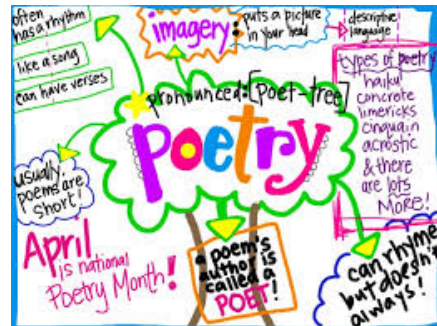 often
has a rhythm
like a song
can have verses
imagery
: puts a picture
in your head
descriptive
language
types of poetry
haiku
concrete
limericks
cinquain
acrostic
& there
are lots
MORE!
pronounced: [poet-tree]
poetry
usually,
poems are
short!
April
is national
Poetry Month!
a poem's
author is
called a
POET!
can rhyme
but doesn't
always!